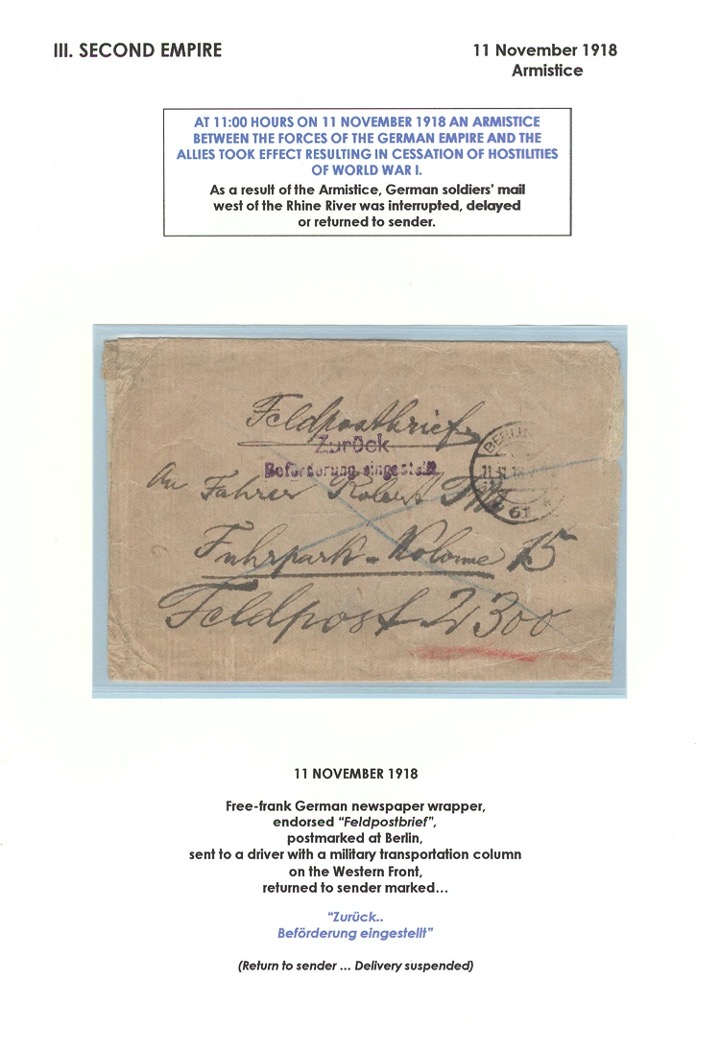 III. SECOND EMPIRE
11 November 1918
Armistice
AT 11:00 HOURS ON 11 NOVEMBER 1918 AN ARMISTICE
BETWEEN THE FORCES OF THE GERMAN EMPIRE AND THE
ALLIES TOOK EFFECT RESULTING IN CESSATION OF HOSTILITIES
OF WORLD WAR I.
As a result of the Armistice, German soldiers' mail
west of the Rhine River was interrupted, delayed
or returned to sender.
Feldpostbrief
Zurück
Beförderung eingestellt
BERLIN
11.11.18
61
An Fahrer Robert
Fuhrpark-Kolonne 15
Feldpost 2300
11 NOVEMBER 1918
Free-frank German newspaper wrapper,
endorsed "Feldpostbrief",
postmarked at Berlin,
sent to a driver with a military transportation column
on the Western Front,
returned to sender marked...
"Zurück..
Beförderung eingestellt"
(Return to sender ... Delivery suspended)